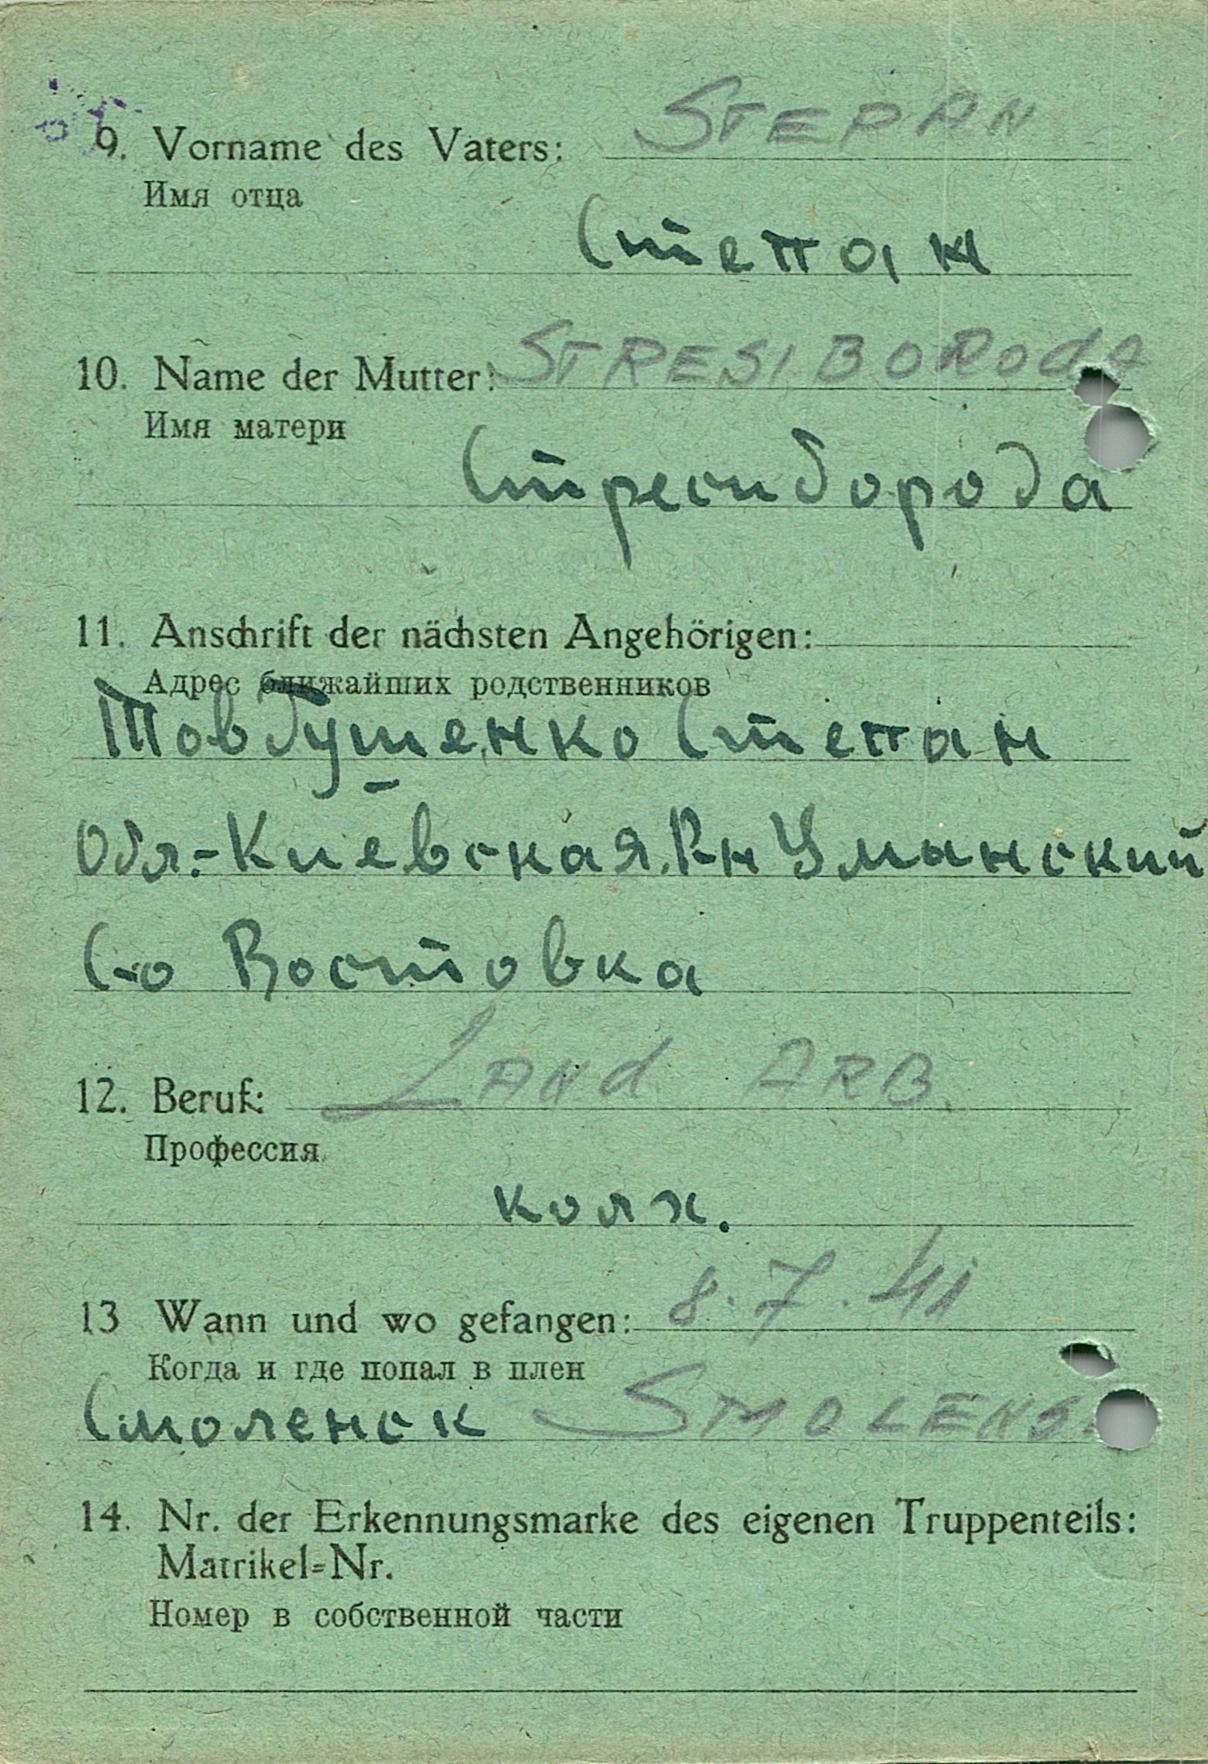 9. Vorname des Vaters: STEPAN
Имя отца
Степан
10. Name der Mutter: STRESIBORODA
Имя матери
Стресиборода
11. Anschrift der nächsten Angehörigen:
Адрес ближайших родственников
Товбушенко Степан
Обл.-Киевская. Р-н Уманский
С-о Востовка
12. Beruf: LANd ARB.
Профессия
колх.
13 Wann und wo gefangen: 8.7.41
Когда и где попал в плен
Смоленск SMOLENS
14. Nr. der Erkennungsmarke des eigenen Truppenteils:
Matrikel=Nr.
Номер в собственной части